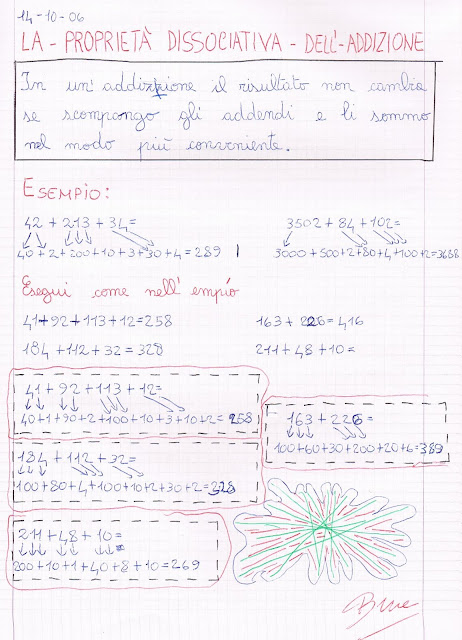 14-10-06
LA - PROPRIETÀ DISSOCIATIVA - DELL'-ADDIZIONE
In un'addizione il risultato non cambia
se scompongo gli addendi e li sommo
nel modo più conveniente.
ESEMPIO:
42 + 213 + 34=
40+2+200+10+3+30+4=289
3502 + 84 + 102=
3000+500+2+80+4+100+2=3688
Esegui come nell'empio
41+92+113+12=258
163+226=416
184+112+32=328
211+48+10=
41+92+113+12=
40+1+90+2+100+10+3+10+2=258
163+226=
100+60+30+200+20+6=389
184+112+32=
100+80+4+100+10+2+30+2=328
211+48+10=
200+10+1+40+8+10=269